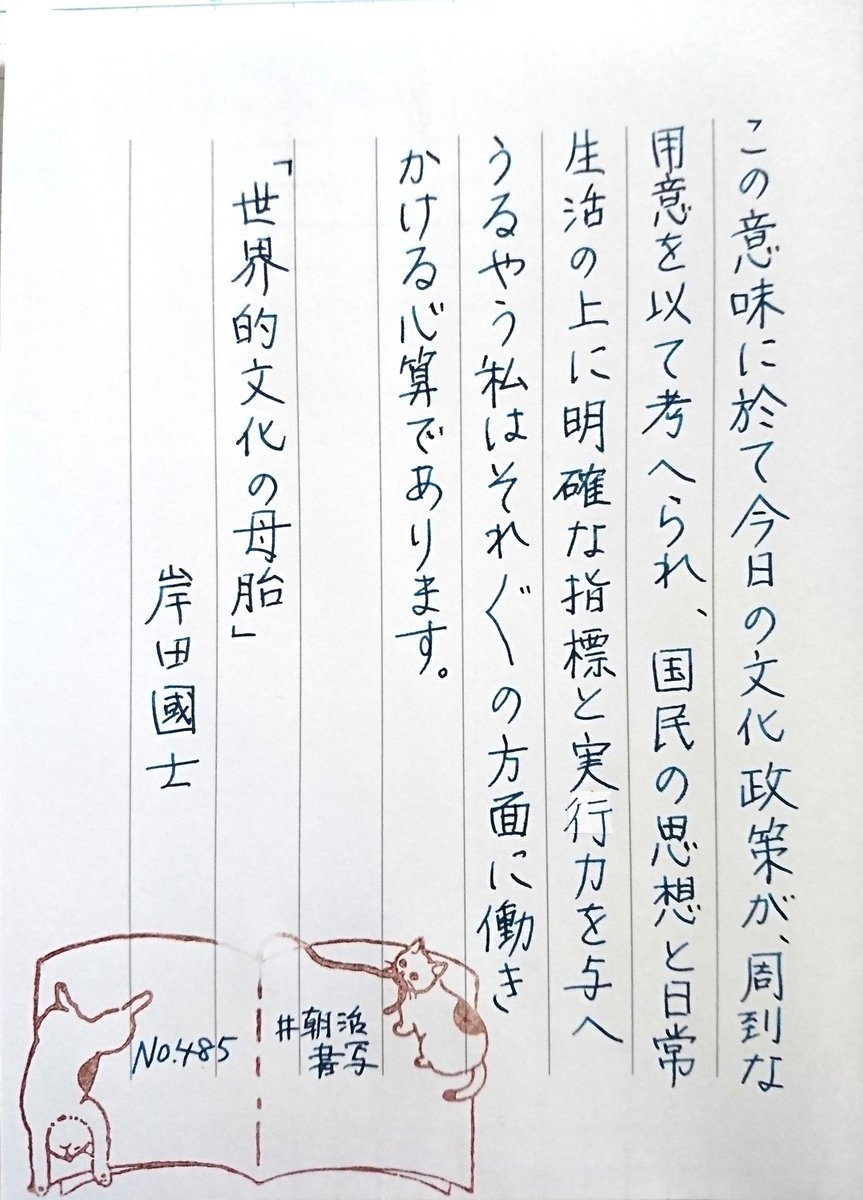 この意味に於て今日の文化政策が、周到な
用意を以て考へられ、国民の思想と日常
生活の上に明確な指標と実行力を与へ
うるやう私はそれ〴〵の方面に働き
かける心算であります。
「世界的文化の母胎」
岸田國士
#朝活
書写
No.485